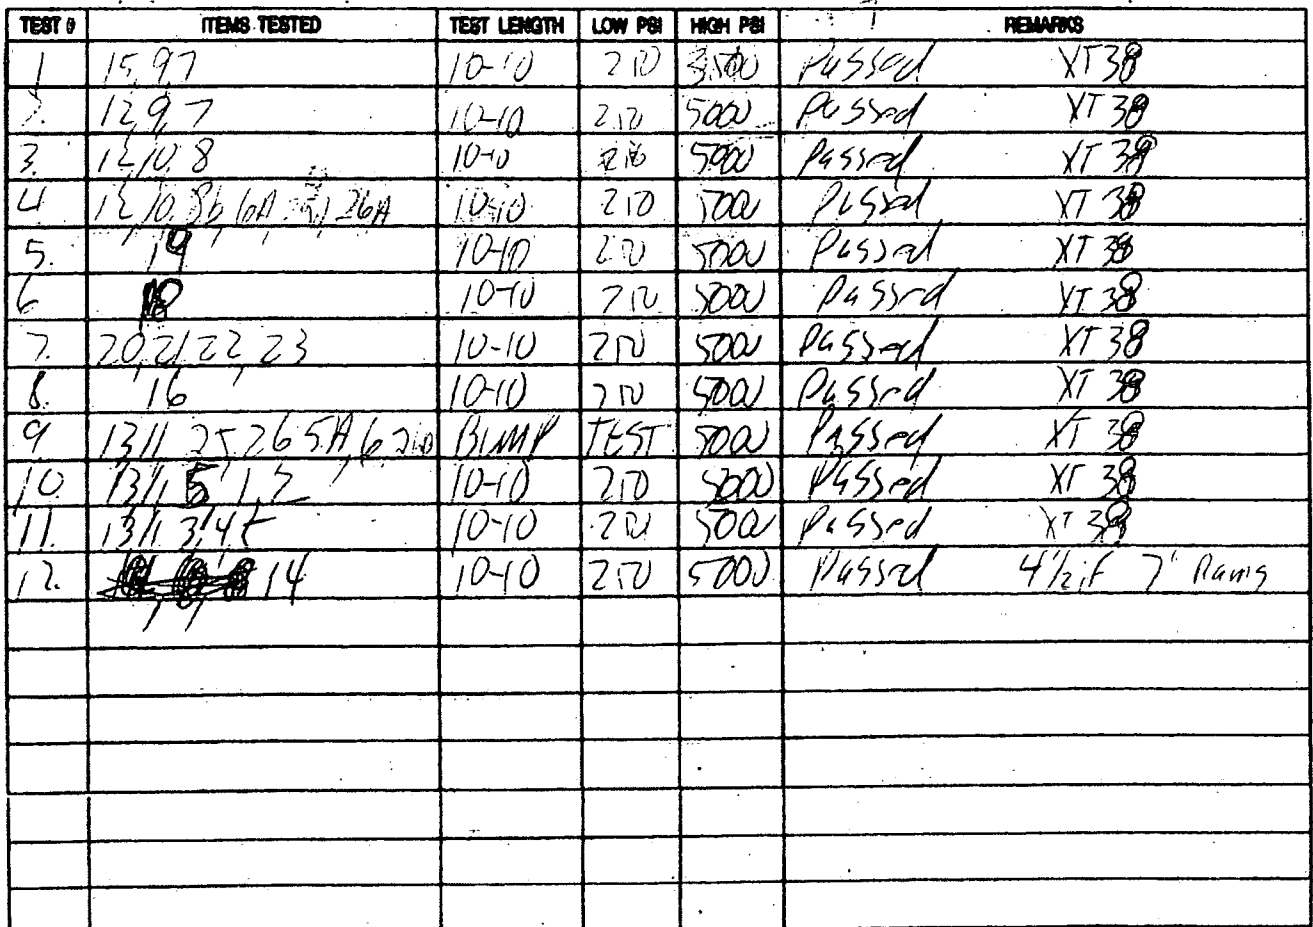 TEST # ITEMS TESTED TEST LENGTH LOW PSI HIGH PSI REMARKS
1 15, 9, 7 10-10 250 3500 Passed XT 38
2. 12, 9, 7 10-10 250 5000 Passed XT 38
3. 12, 10, 8 10-10 250 5000 Passed XT 38
4 12, 10, 26A 10-10 250 5000 Passed XT 38
5. 19 10-10 250 5000 Passed XT 38
6 18 10-10 250 5000 Passed XT 38
7. 20, 21, 22, 23 10-10 250 5000 Passed XT 38
8. 16 10-10 250 5000 Passed XT 38
9. 13, 11, 25, 26, 5A, 6, BUMP TEST 5000 Passed XT 38
10. 13, 11, 5, 1, 2 10-10 250 5000 Passed XT 38
11. 13, 11, 3, 4 10-10 250 5000 Passed XT 38
12. 14 10-10 250 5000 Passed 4 1/2 IF 7" Rams